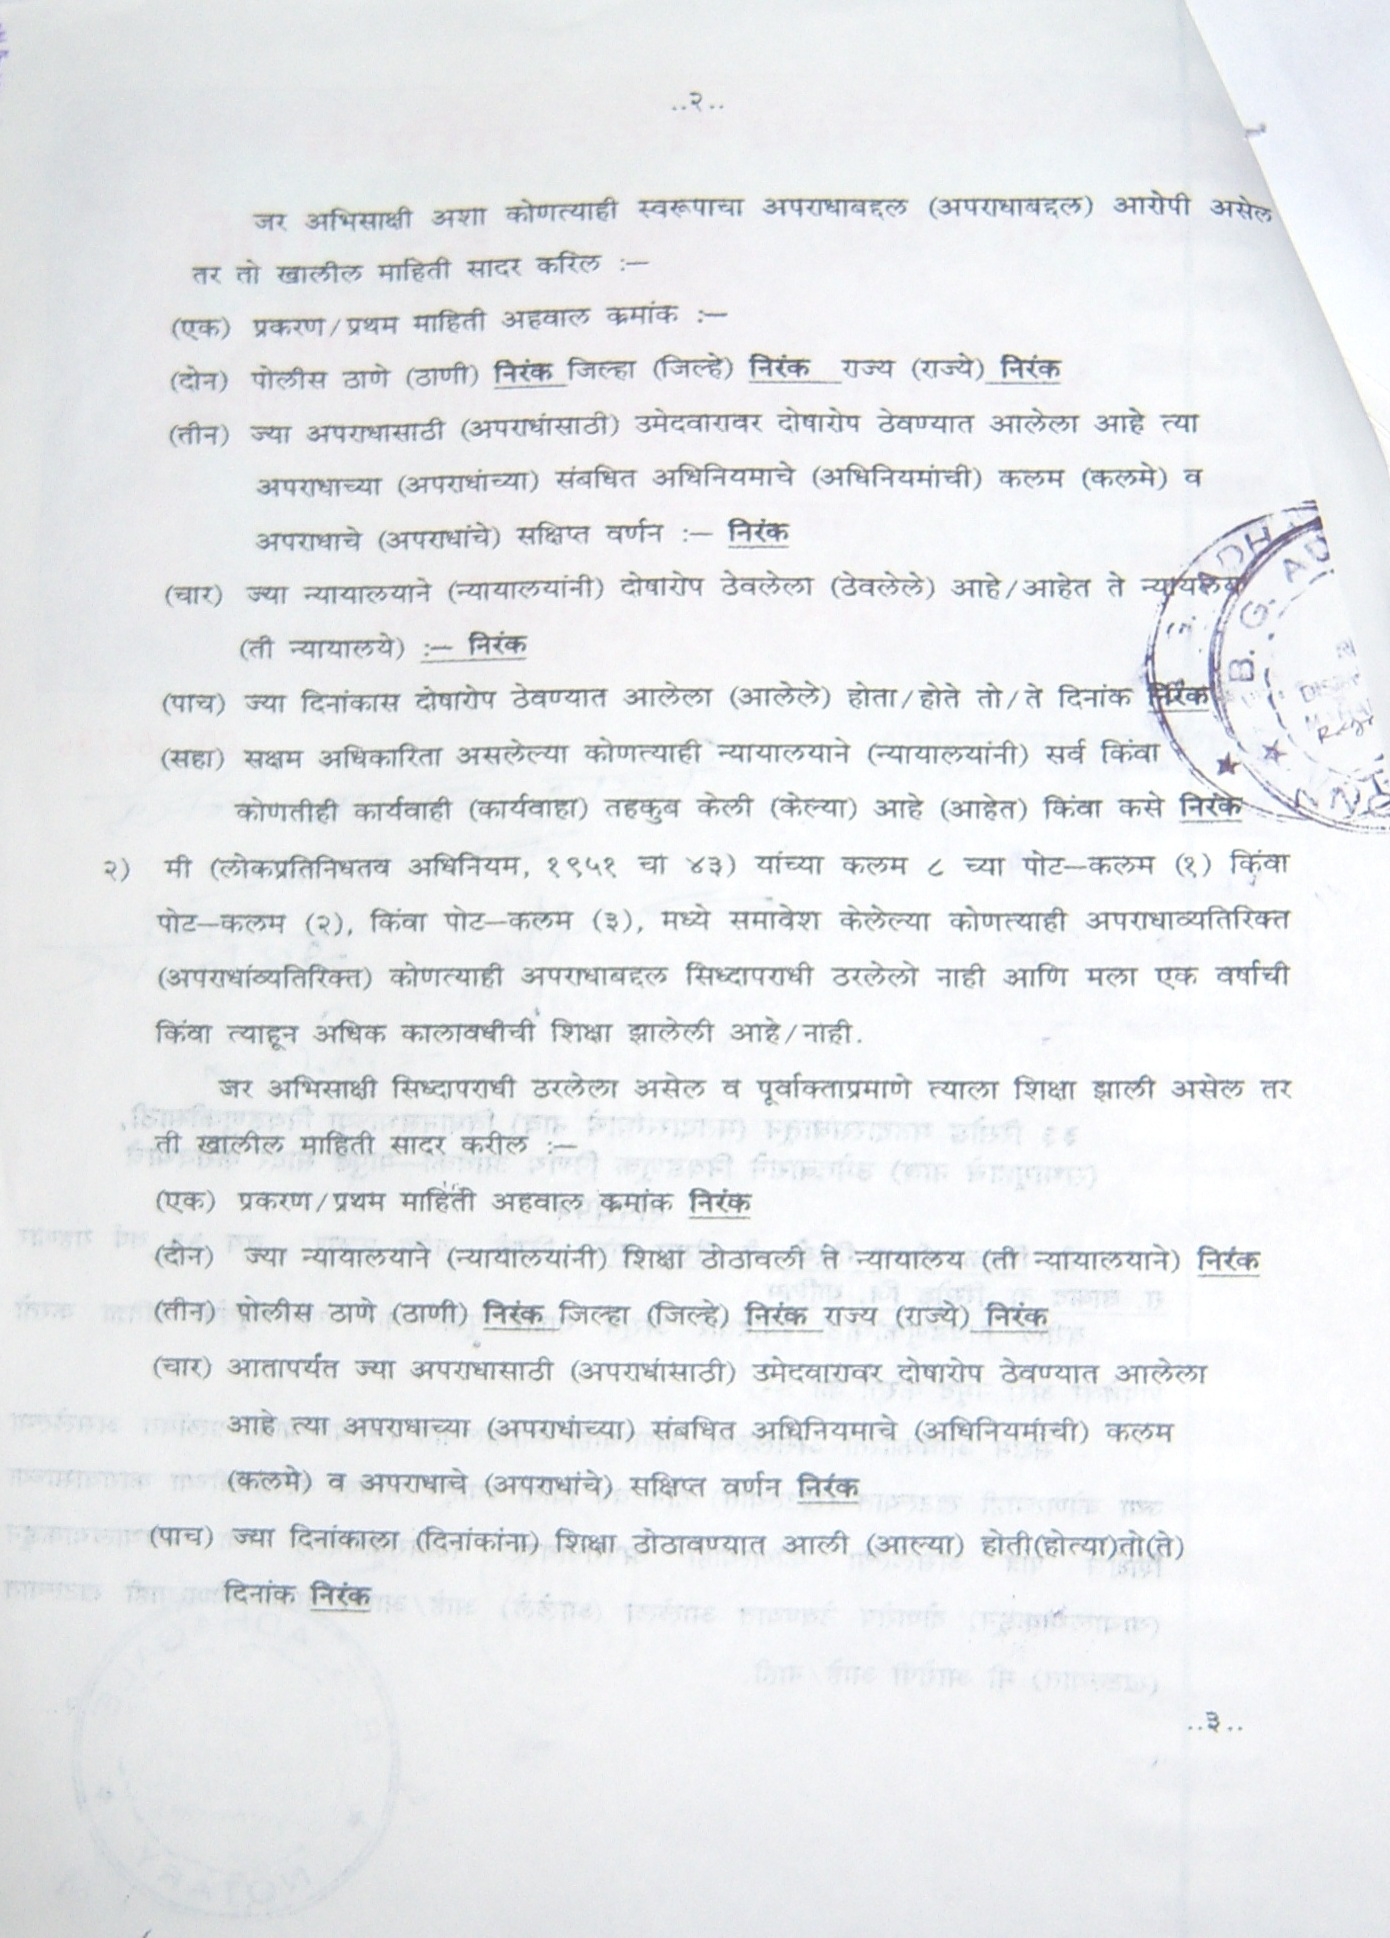 ..२..
जर अभिसाक्षी अशा कोणत्याही स्वरूपाचा अपराधाबद्दल (अपराधाबद्दल) आरोपी असेल
तर तो खालील माहिती सादर करिल :—
(एक) प्रकरण/प्रथम माहिती अहवाल क्रमांक :—
(दोन) पोलीस ठाणे (ठाणी) निरंक जिल्हा (जिल्हे) निरंक राज्य (राज्ये) निरंक
(तीन) ज्या अपराधासाठी (अपराधांसाठी) उमेदवारावर दोषारोप ठेवण्यात आलेला आहे त्या
अपराधाच्या (अपराधांच्या) संबधित अधिनियमाचे (अधिनियमांची) कलम (कलमे) व
अपराधाचे (अपराधांचे) सक्षिप्त वर्णन :— निरंक
(चार) ज्या न्यायालयाने (न्यायालयांनी) दोषारोप ठेवलेला (ठेवलेले) आहे/आहेत ते न्यायलय
(ती न्यायालये) :— निरंक
(पाच) ज्या दिनांकास दोषारोप ठेवण्यात आलेला (आलेले) होता/होते तो/ते दिनांक निरंक
(सहा) सक्षम अधिकारिता असलेल्या कोणत्याही न्यायालयाने (न्यायालयांनी) सर्व किंवा
कोणतीही कार्यवाही (कार्यवाहा) तहकुब केली (केल्या) आहे (आहेत) किंवा कसे निरंक
B. G. AD
२) मी (लोकप्रतिनिधतव अधिनियम, १९५१ चा ४३) यांच्या कलम ८ च्या पोट—कलम (१) किंवा
पोट—कलम (२), किंवा पोट—कलम (३), मध्ये समावेश केलेल्या कोणत्याही अपराधाव्यतिरिक्त
(अपराधांव्यतिरिक्त) कोणत्याही अपराधाबद्दल सिध्दापराधी ठरलेलो नाही आणि मला एक वर्षाची
किंवा त्याहून अधिक कालावधीची शिक्षा झालेली आहे/नाही.
जर अभिसाक्षी सिध्दापराधी ठरलेला असेल व पूर्वाक्ताप्रमाणे त्याला शिक्षा झाली असेल तर
ती खालील माहिती सादर करील :—
(एक) प्रकरण/प्रथम माहिती अहवाल क्रमांक निरंक
(दोन) ज्या न्यायालयाने (न्यायालयांनी) शिक्षा ठोठावली ते न्यायालय (ती न्यायालयाने) निरंक
(तीन) पोलीस ठाणे (ठाणी) निरंक जिल्हा (जिल्हे) निरंक राज्य (राज्ये) निरंक
(चार) आतापर्यंत ज्या अपराधासाठी (अपराधांसाठी) उमेदवारावर दोषारोप ठेवण्यात आलेला
आहे त्या अपराधाच्या (अपराधांच्या) संबधित अधिनियमाचे (अधिनियमांची) कलम
(कलमे) व अपराधाचे (अपराधांचे) सक्षिप्त वर्णन निरंक
(पाच) ज्या दिनांकाला (दिनांकांना) शिक्षा ठोठावण्यात आली (आल्या) होती(होत्या)तो(ते)
दिनांक निरंक
..३..